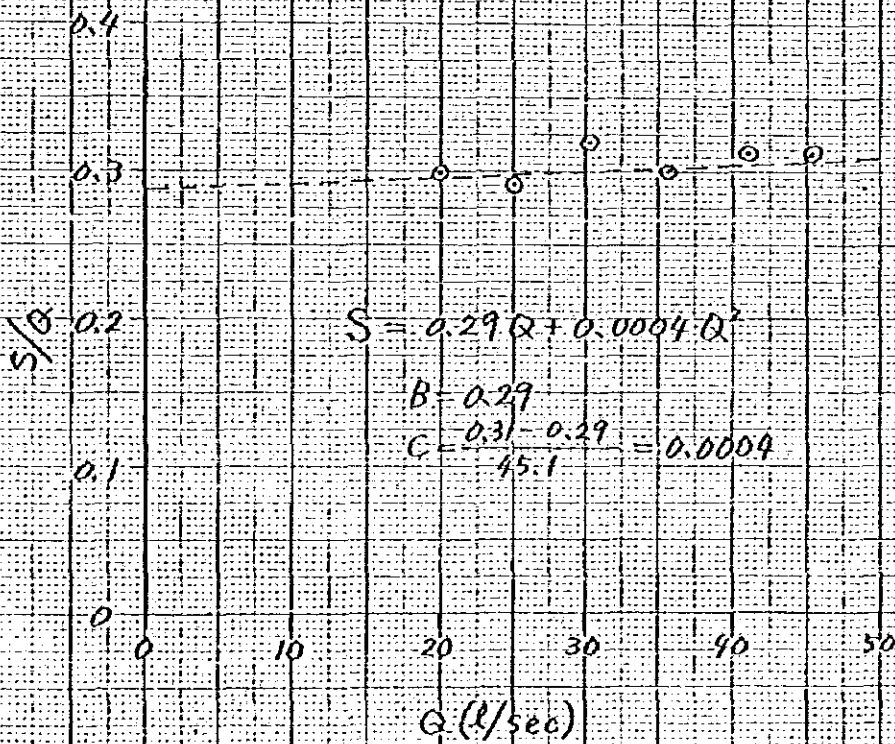 0.4
0.3
S/Q
0.2
S = 0.29Q + 0.0004Q²
B = 0.29
C = 0.31 - 0.29 / 45.1 = 0.0004
0.1
0
0 10 20 30 40 50
Q (l/sec)